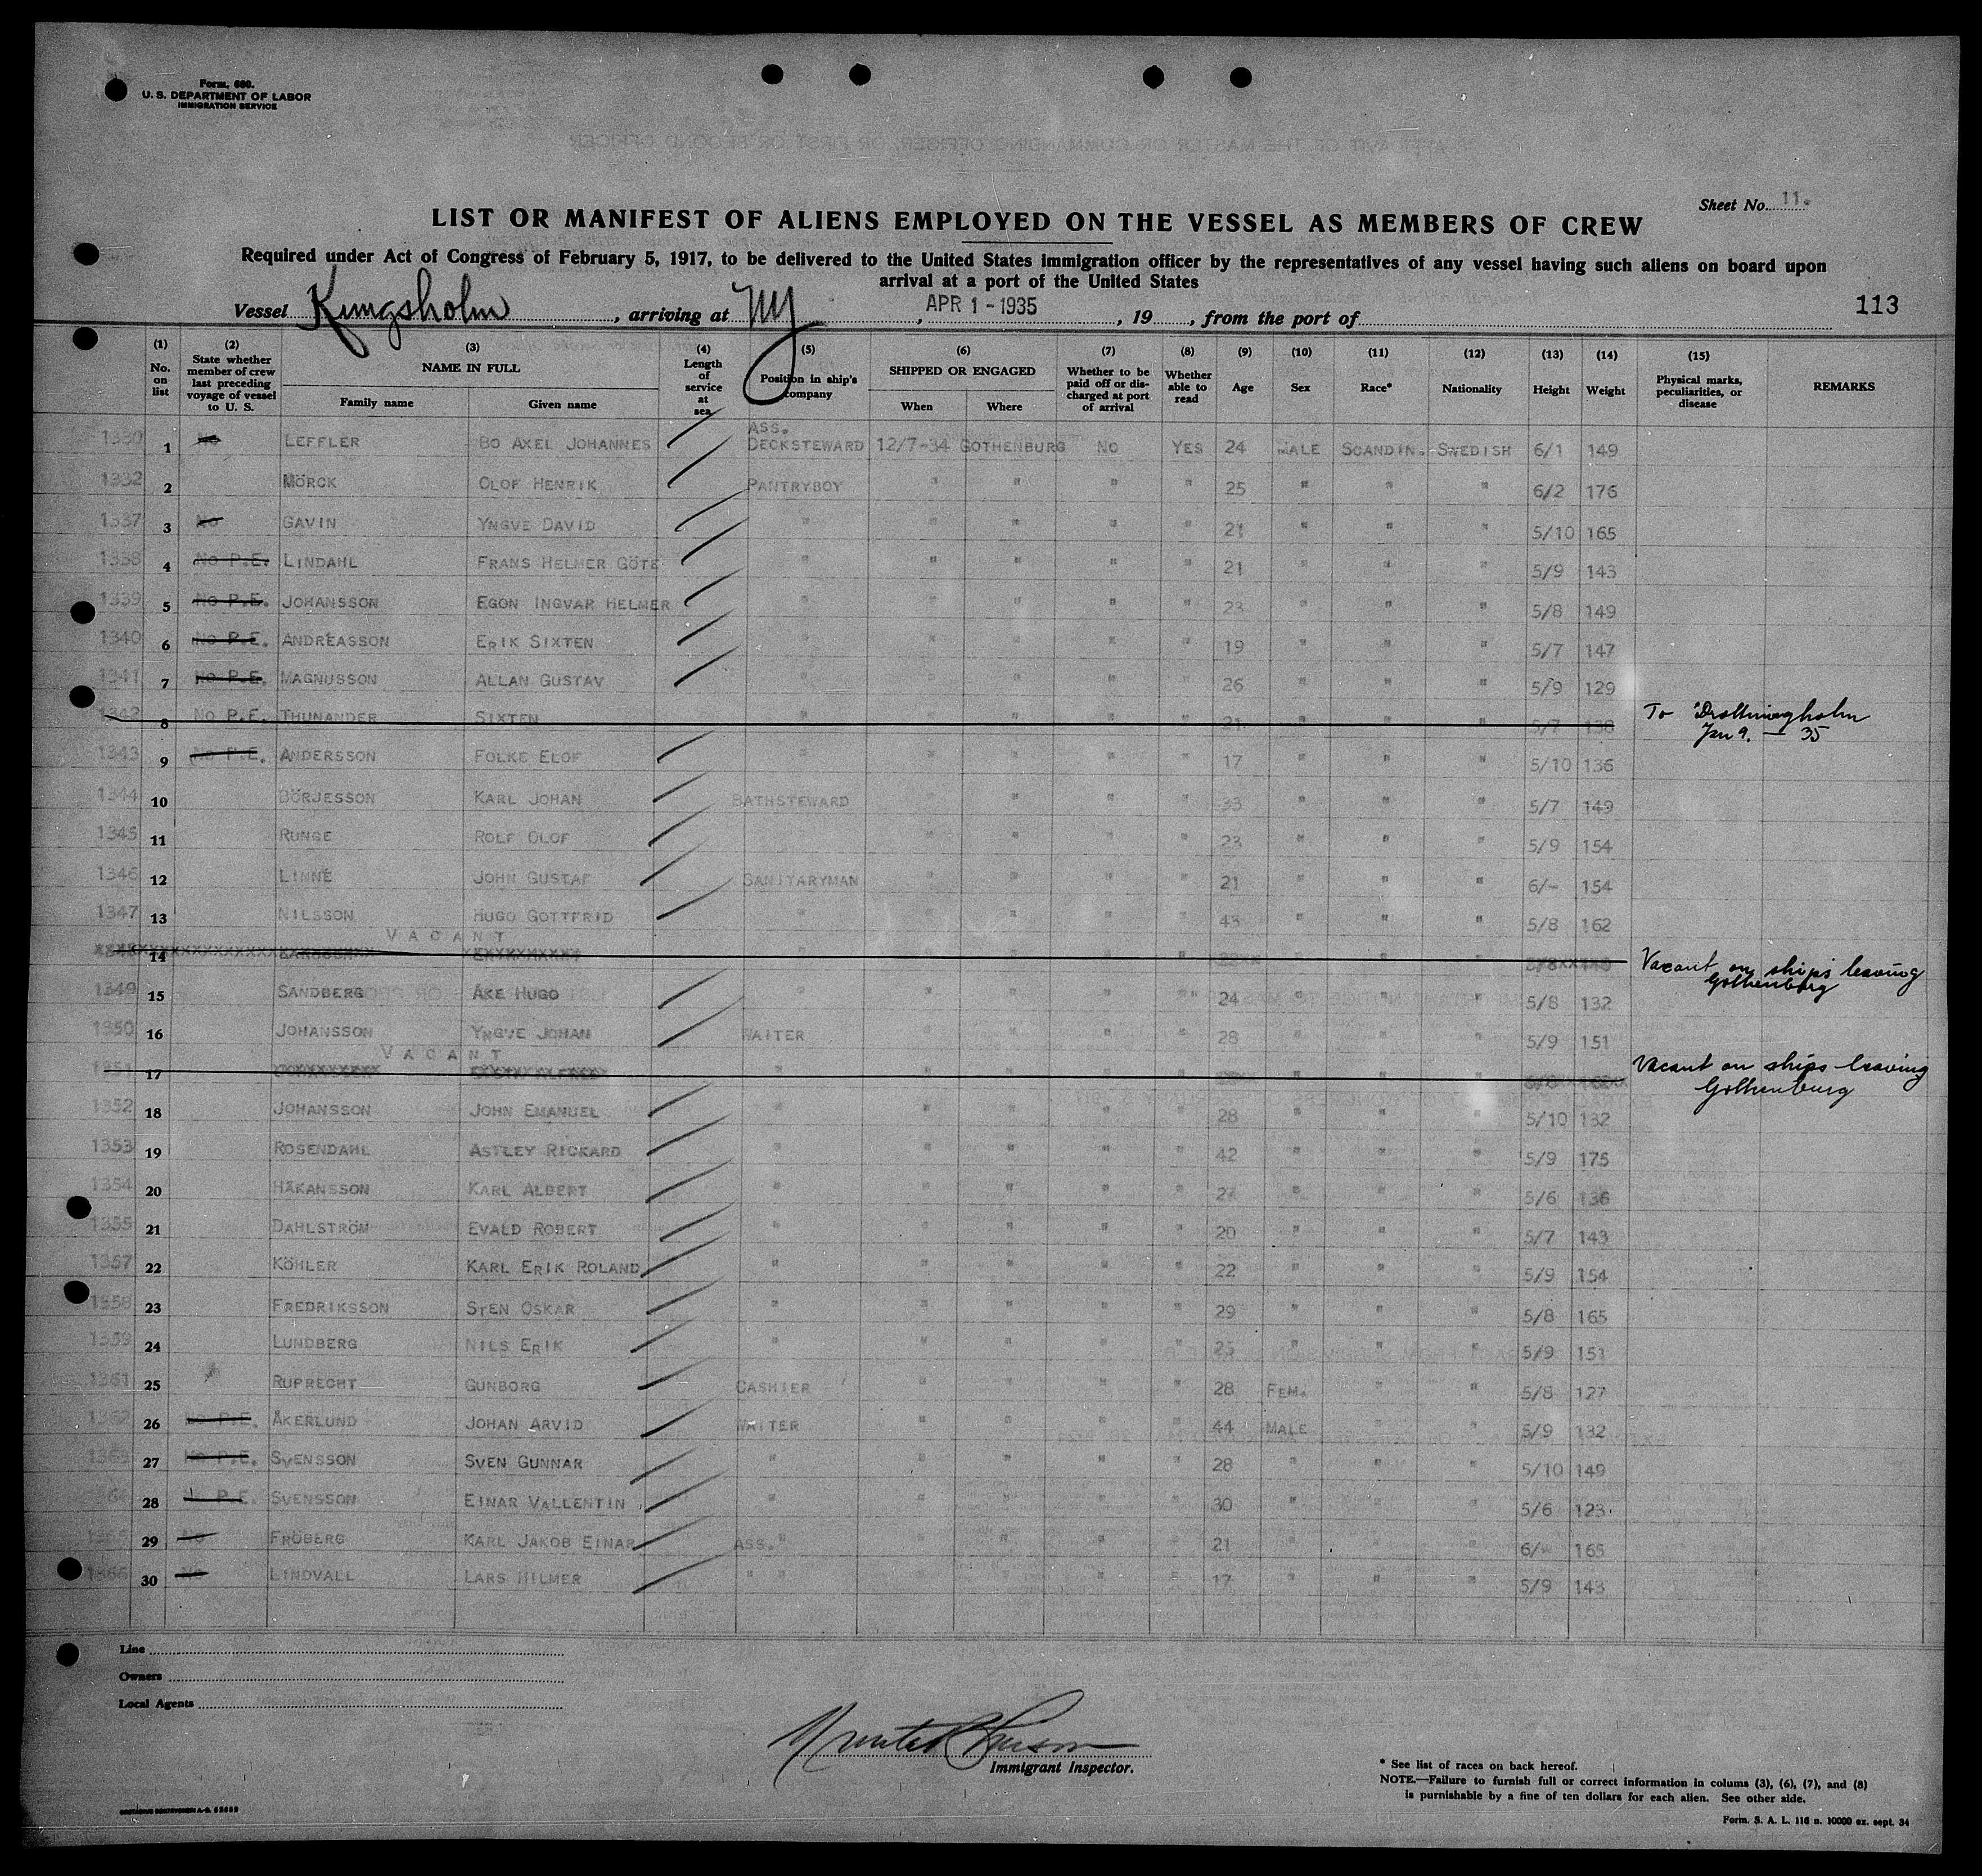 Form, 680.
U. S. DEPARTMENT OF LABOR
IMMIGRATION SERVICE
Sheet No. 11.
LIST OR MANIFEST OF ALIENS EMPLOYED ON THE VESSEL AS MEMBERS OF CREW
Required under Act of Congress of February 5, 1917, to be delivered to the United States immigration officer by the representatives of any vessel having such aliens on board upon
arrival at a port of the United States
Vessel Kungsholm, arriving at NY, APR 1 - 1935, 19, from the port of
113
(1) No. on list (2) State whether member of crew last preceding voyage of vessel to U. S. (3) NAME IN FULL Family name Given name (4) Length of service at sea (5) Position in ship's company (6) SHIPPED OR ENGAGED When Where (7) Whether to be paid off or discharged at port of arrival (8) Whether able to read (9) Age (10) Sex (11) Race* (12) Nationality (13) Height (14) Weight (15) Physical marks, peculiarities, or disease REMARKS
1330 1 No LEFFLER BO AXEL JOHANNES ASS. DECKSTEWARD 12/7-34 GOTHENBURG NO YES 24 MALE SCANDIN. SWEDISH 6/1 149
1332 2 MÖRCK OLOF HENRIK PANTRYBOY " " " " 25 " " " 6/2 176
1337 3 No GAVIN YNGVE DAVID " " " " " 21 " " " 5/10 165
1338 4 No P.E. LINDAHL FRANS HELMER GÖTE " " " " " 21 " " " 5/9 143
1339 5 No P.E. JOHANSSON EGON INGVAR HELMER " " " " " 23 " " " 5/8 149
1340 6 No P.E. ANDREASSON ERIK SIXTEN " " " " " 19 " " " 5/7 147
1341 7 No P.E. MAGNUSSON ALLAN GUSTAV " " " " " 26 " " " 5/9 129
1342 8 No P.E. THUNANDER SIXTEN 21 5/7 138 To Drottningholm Jan 9. — 35
1343 9 No P.E. ANDERSSON FOLKE ELOF " " " " " 17 " " " 5/10 136
1344 10 BÖRJESSON KARL JOHAN BATHSTEWARD " " " " 33 " " " 5/7 149
1345 11 RUNGE ROLF OLOF " " " " 23 " " " 5/9 154
1346 12 LINNÉ JOHN GUSTAF SANITARYMAN " " " " 21 " " " 6/- 154
1347 13 NILSSON HUGO GOTTFRID " " " " " 43 " " " 5/8 162
VACANT
14 Vacant on ships leaving Gothenborg
1349 15 SANDBERG ÅKE HUGO " " " " " 24 " " " 5/8 132
1350 16 JOHANSSON YNGVE JOHAN WAITER " " " " 28 " " " 5/9 151
VACANT
1351 17 Vacant on ships leaving Gothenburg
1352 18 JOHANSSON JOHN EMANUEL " " " " " 28 " " " 5/10 132
1353 19 ROSENDAHL ASTLEY RICKARD " " " " " 42 " " " 5/9 175
1354 20 HÅKANSSON KARL ALBERT " " " " " 27 " " " 5/6 136
1355 21 DAHLSTRÖM EVALD ROBERT " " " " " 20 " " " 5/7 143
1357 22 KÖHLER KARL ERIK ROLAND " " " " " 22 " " " 5/9 154
1358 23 FREDRIKSSON STEN OSKAR " " " " " 29 " " " 5/8 165
1359 24 LUNDBERG NILS ERIK " " " " " 25 " " " 5/9 151
1361 25 RUPRECHT GUNBORG CASHIER " " " " 28 FEM. " " 5/8 127
1362 26 No P.E. ÅKERLUND JOHAN ARVID WAITER " " " " 44 MALE " " 5/9 132
1363 27 No P.E. SVENSSON SVEN GUNNAR " " " " " 28 " " " 5/10 149
28 P.E. SVENSSON EINAR VALLENTIN " " " " " 30 " " " 5/6 123
1365 29 No FRÖBERG KARL JAKOB EINAR ASS. " " " " " 21 " " " 6/- 165
1366 30 No LINDVALL LARS HILMER " " " " " " 17 " " " 5/9 143
Line
Owners
Local Agents
Immigrant Inspector.
* See list of races on back hereof.
NOTE.—Failure to furnish full or correct information in colums (3), (6), (7), and (8)
is purnishable by a fine of ten dollars for each alien. See other side.
Form. S. A. L. 116 n. 10000 ex. sept. 34